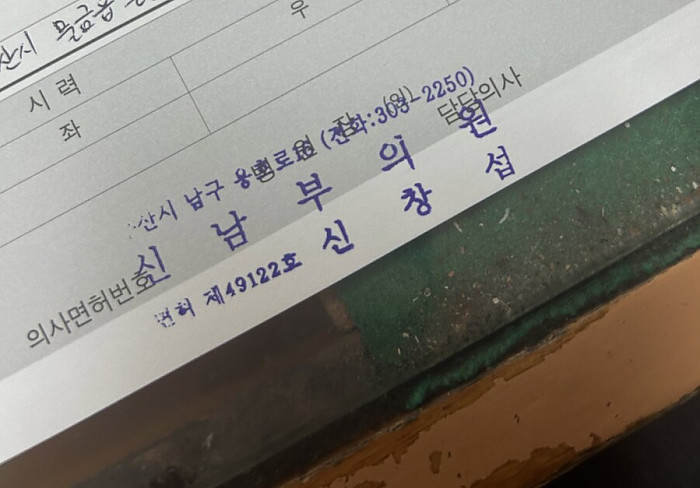 산시 물금읍
시력
우
좌
병 원 장 (인)
담당의사
산시 남구 용호로 (전화:305-2250)
신 남 부 의 원
의사면허번호
면허 제49122호 신 창 섭